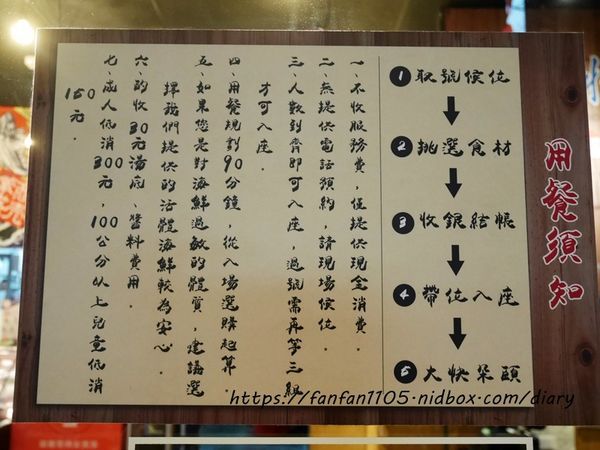 用餐須知
❶取號候位
❷挑選食材
❸收銀結帳
❹帶位入座
❺大快朵頤
一、不收服務費，僅提供現金消費．
二、無提供電話預約，請現場候位．
三、人數到齊即可入座，過號需再等三組
才可入座．
四、用餐規則90分鐘，從入場選購起算．
五、如果您是對海鮮過敏的體質，建議選
擇我們提供的活體海鮮較為安心．
六、酌收30元湯底、醬料費用．
七、成人低消300元，100公分以上兒童低消
150元．
https://fanfan1105.nidbox.com/diary